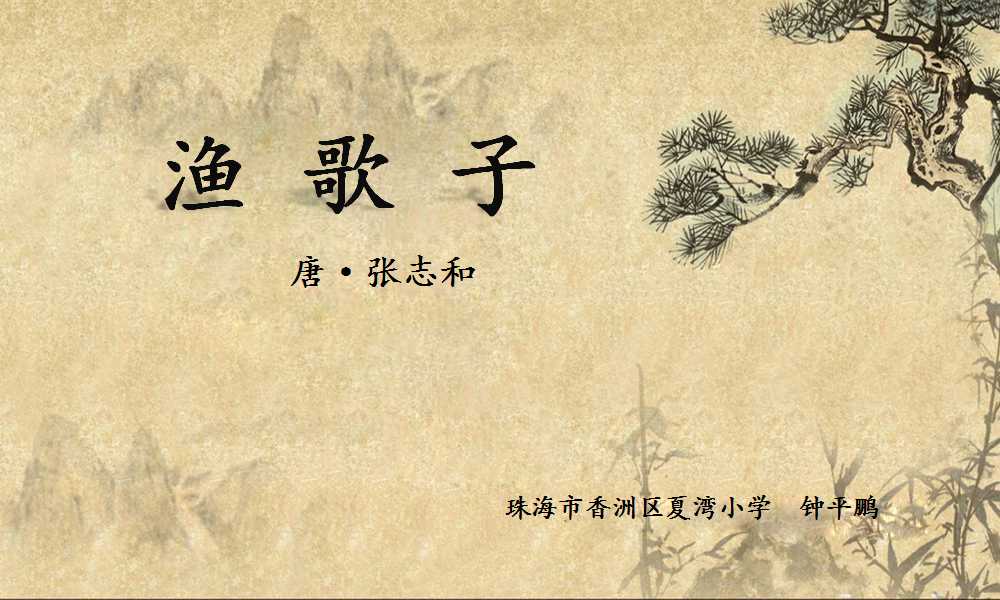 渔歌子
唐·张志和
珠海市香洲区夏湾小学 钟平鹏